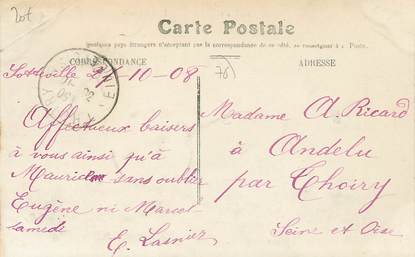 Carte Postale
quelques pays étrangers n'acceptant pas la correspondance de ce côté, se renseigner à la Poste.
CORRESPONDANCE
ADRESSE
Sotteville 21-10-08
78
Affectueux baisers
à vous ainsi qu'à
Maurice sans oublier
Eugène ni Marcel
samedi
E. Lasnier
Madame A. Ricard
à Andelu
par Thoiry
Seine et Oise